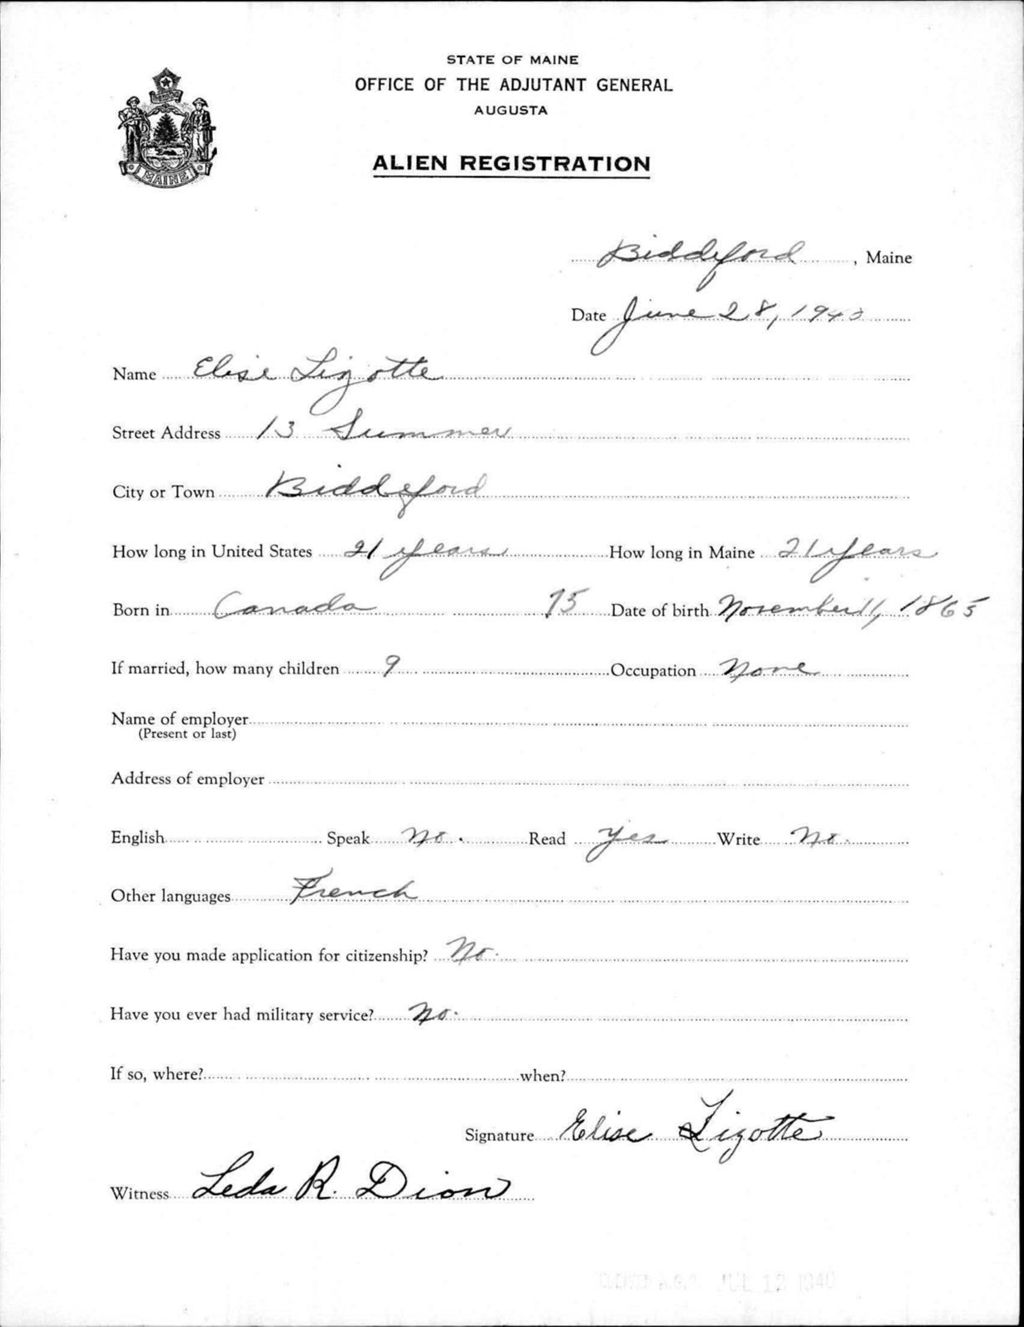 STATE OF MAINE
OFFICE OF THE ADJUTANT GENERAL
AUGUSTA
ALIEN REGISTRATION
MAINE
Biddeford, Maine
Date June 28, 1940
Name Elise Lizotte
Street Address 13 Summer
City or Town Biddeford
How long in United States 21 years How long in Maine 21 years
Born in Canada 75 Date of birth November 11, 1865
If married, how many children 9 Occupation None
Name of employer
(Present or last)
Address of employer
English Speak No. Read Yes Write No.
Other languages French
Have you made application for citizenship? No.
Have you ever had military service? No.
If so, where? when?
Signature Elise Lizotte
Witness Leda R. Dion
JUL 12 1940